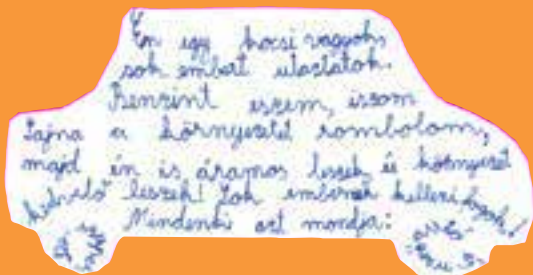 Én egy kocsi vagyok,
sok embert utaztatok.
Benzint eszem, iszom
Sajna a környezetet rombolom,
majd én is áramos leszek, és környezet
kedvelő leszek! Sok embernek kelleni fogok!
Mindenki azt mondja: